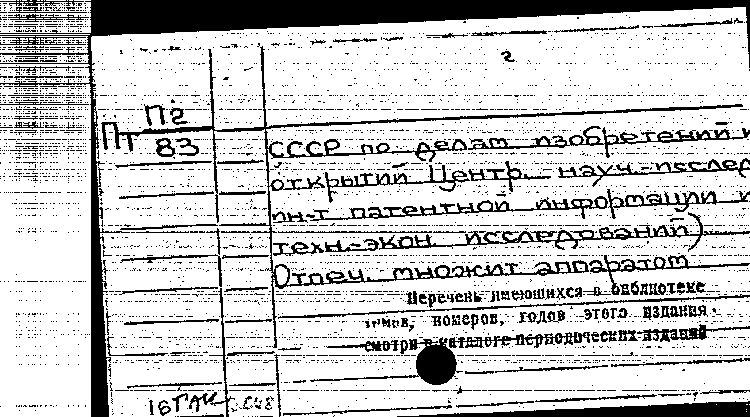 2
П2
Пт 83
СССР по делам изобретений и
открытий Центр. науч.-исслед
ин-т патентной информации и
техн.-экон. исследований)
Отпеч. множит аппаратом
Перечень имеющихся в библиотеке
томов, номеров, годов этого издания
смотри в каталоге периодических изданий
16 ГАК